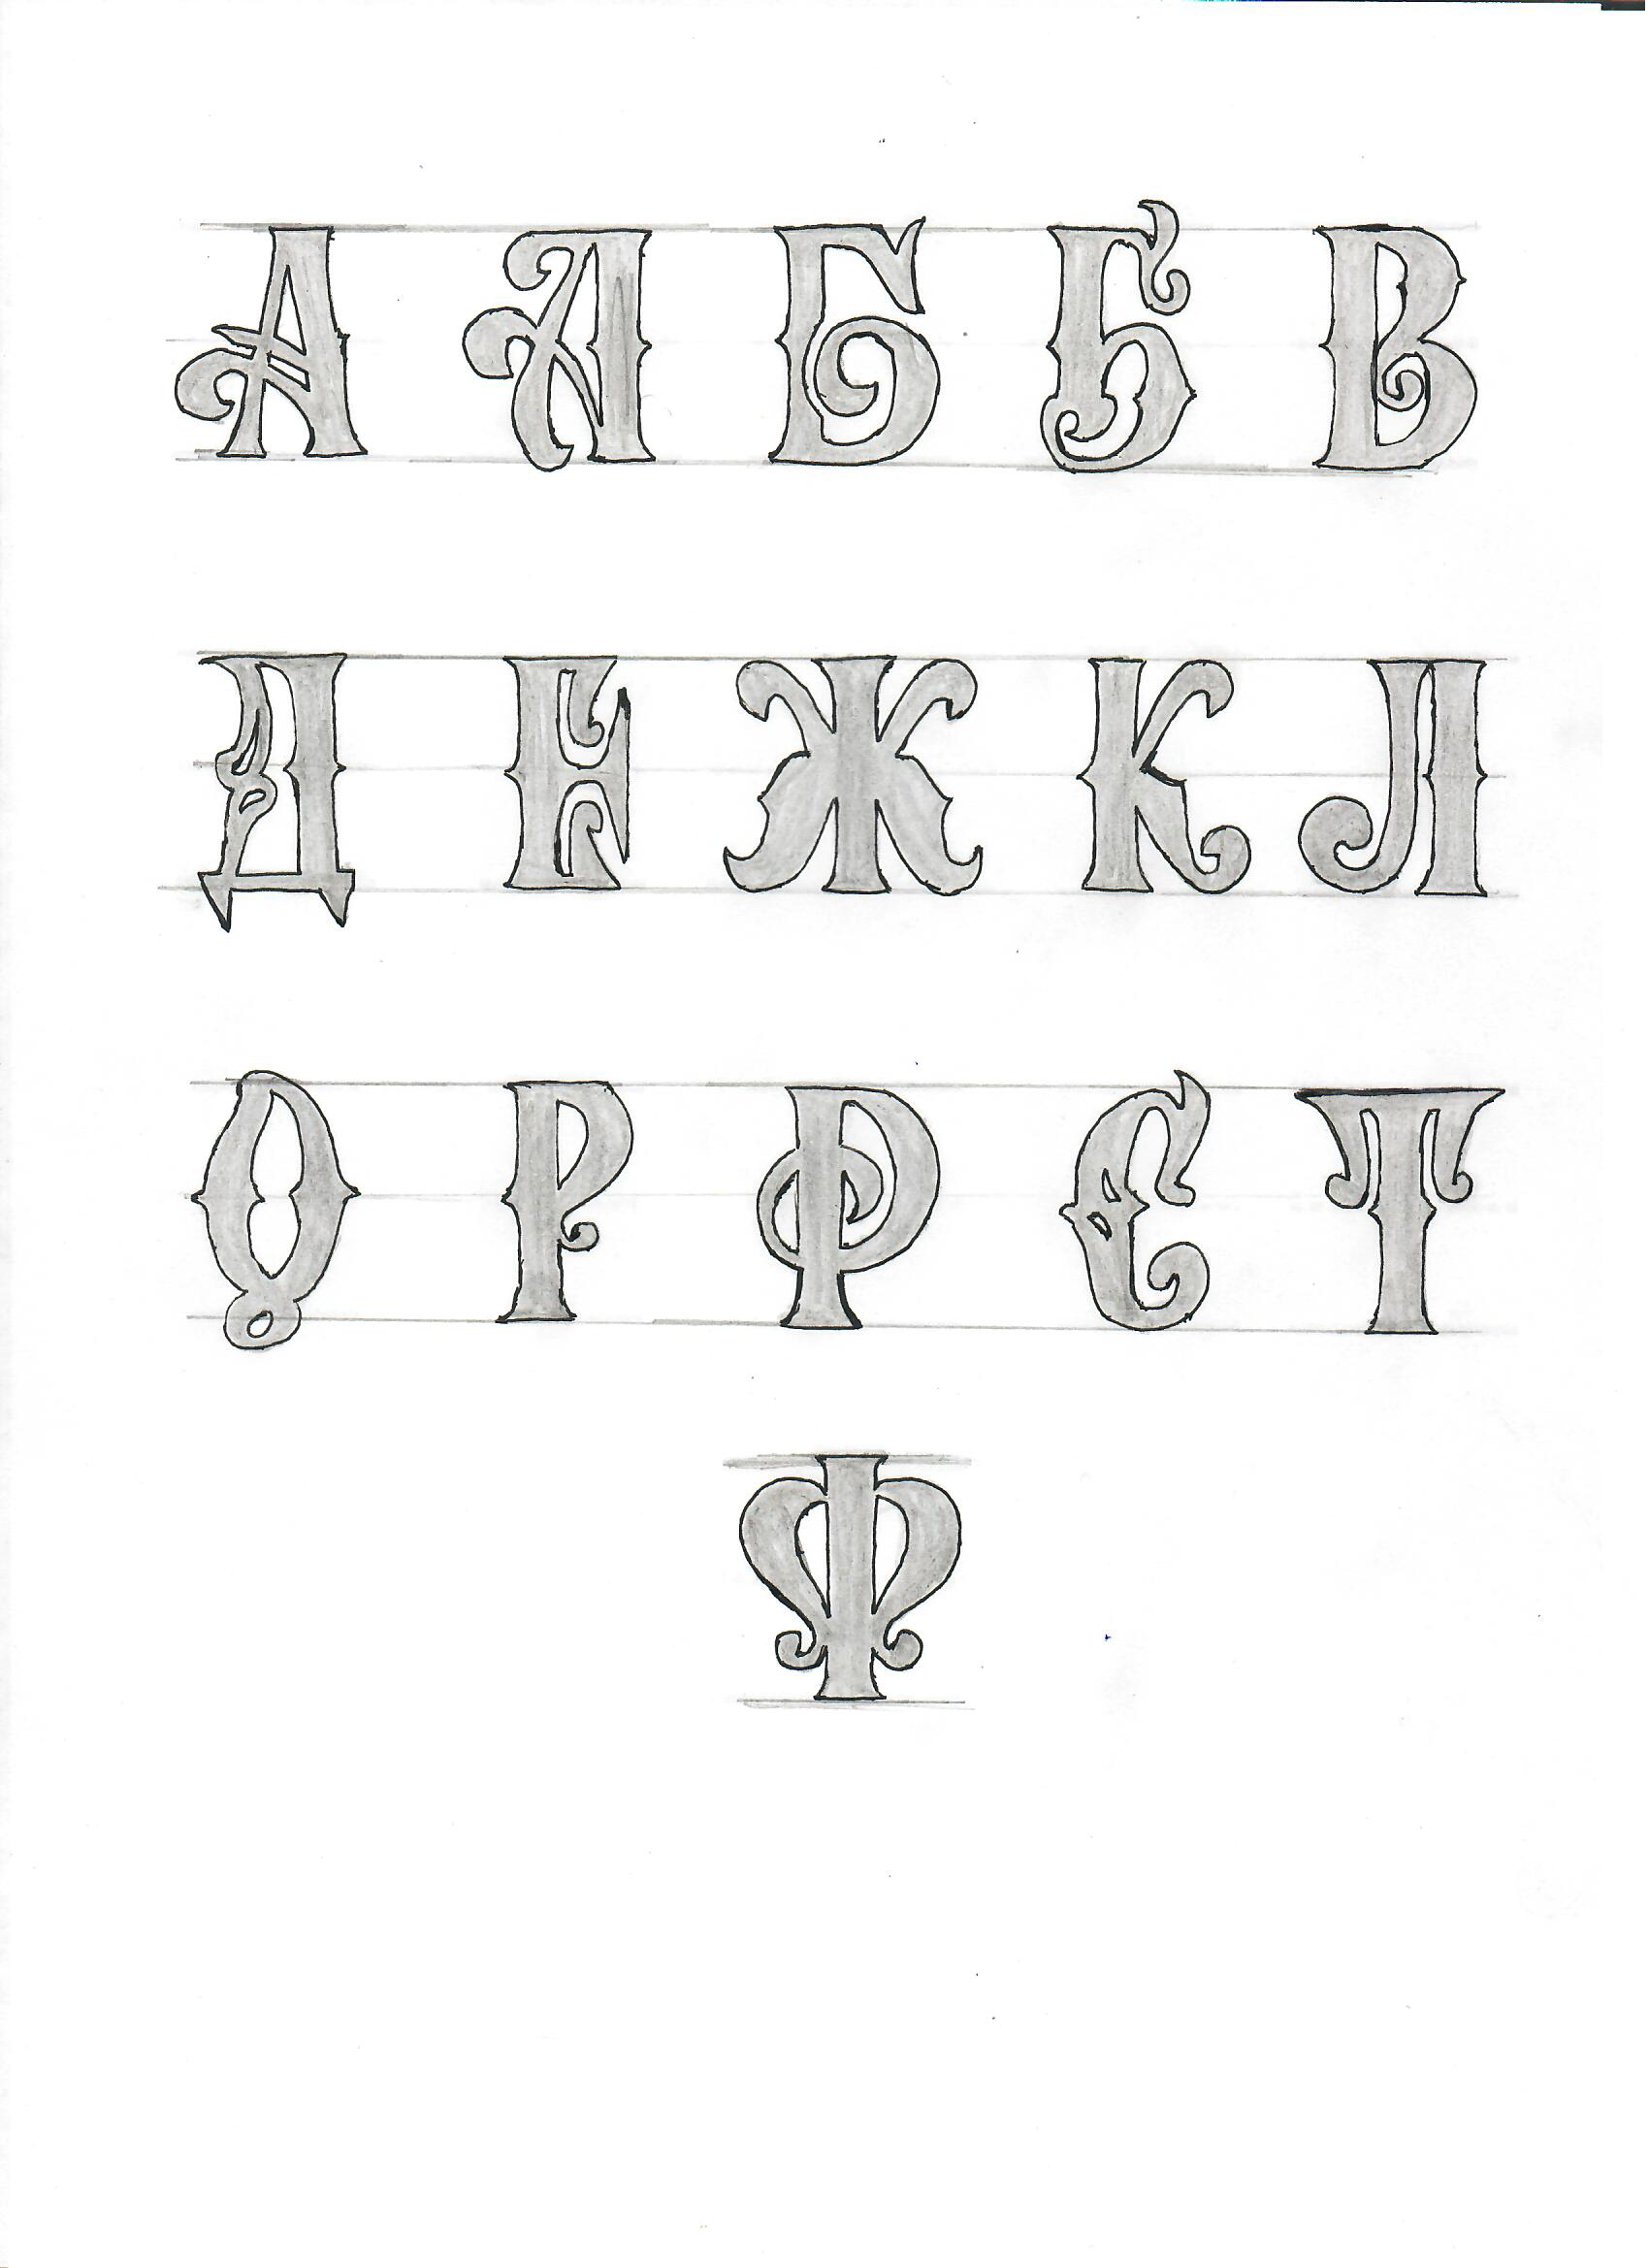 А А Б Б В
Д Е Ж К Л
О Р Р С Т
Ф